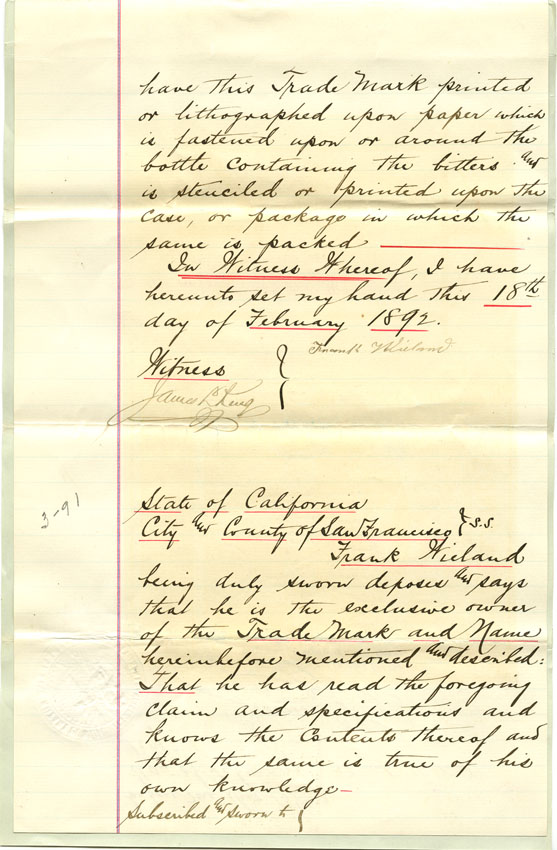 have this Trade Mark printed
or lithographed upon paper which
is fastened upon or around the
bottle containing the bitters and
is stenciled or printed upon the
case, or package in which the
same is packed
In Witness Whereof, I have
hereunto set my hand this 18th
day of February 1892.
Frank Wieland
Witness
James L. King
3-91
State of California
City and County of San Francisco } S.S.
Frank Wieland
being duly sworn deposes and says
that he is the exclusive owner
of the Trade Mark and Name
hereinbefore mentioned and described:
That he has read the foregoing
claim and specifications and
knows the Contents thereof and
that the same is true of his
own knowledge-
Subscribed and sworn to }